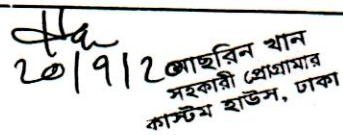 20/9/2
আছরিন খান
সহকারী প্রোগ্রামার
কাস্টম হাউস, ঢাকা